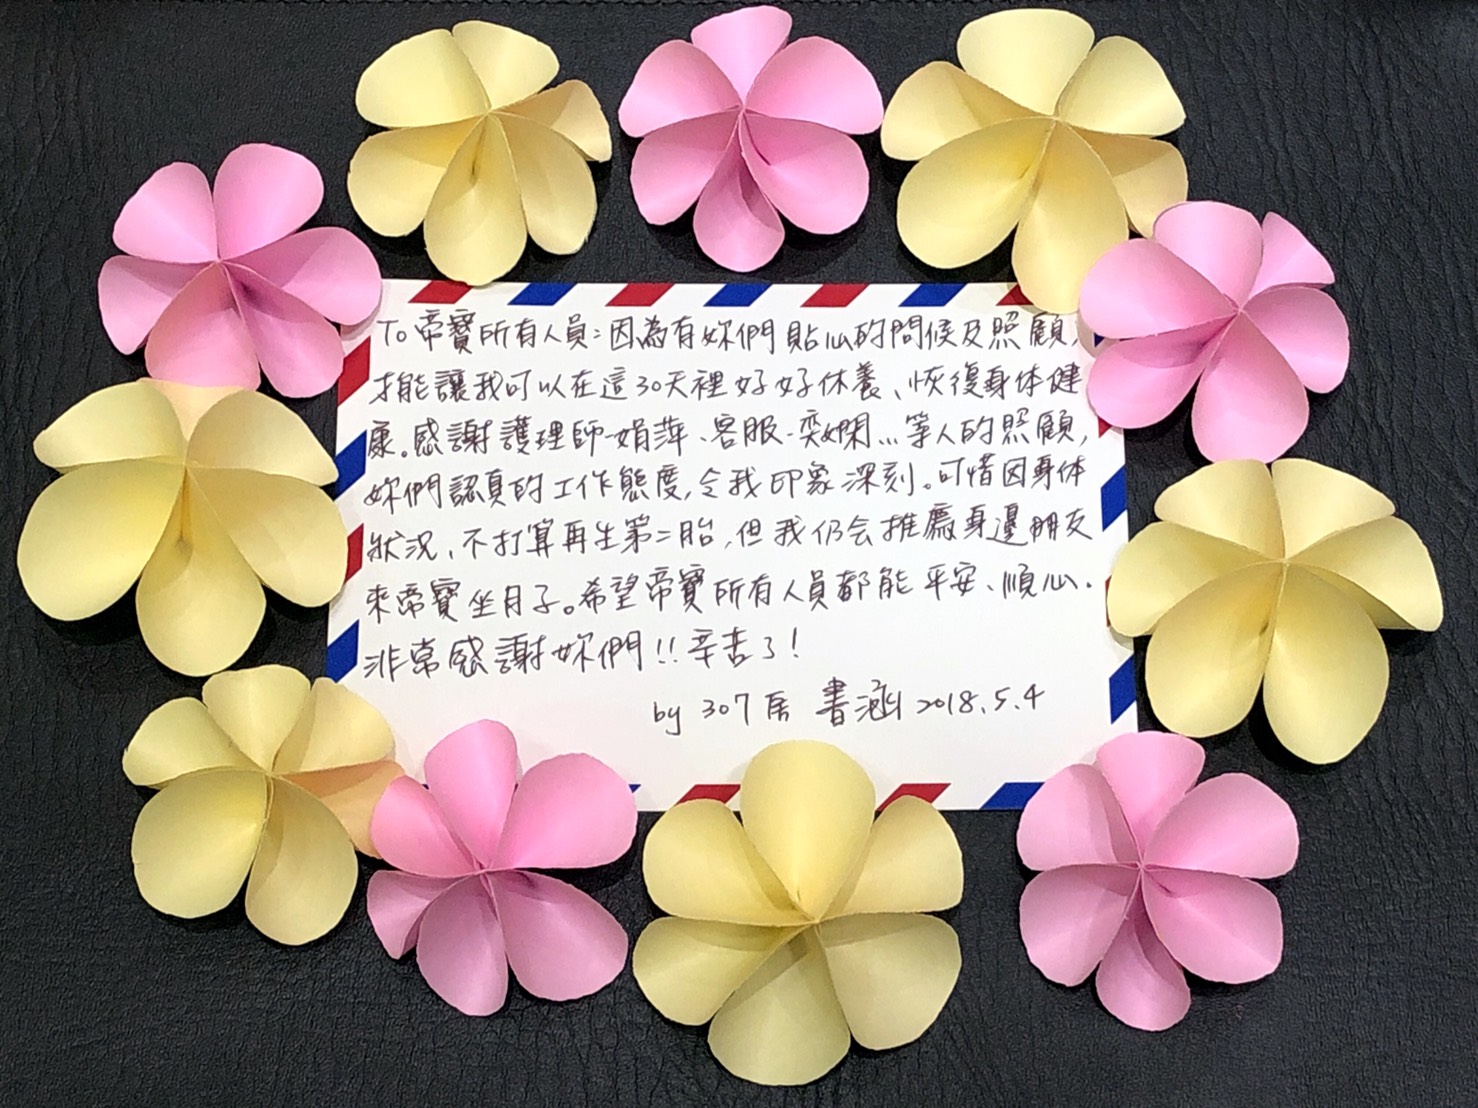 To帝寶所有人員：因為有妳們貼心的問候及照顧，
才能讓我可以在這30天裡好好休養、恢復身体健
康。感謝護理師-娟萍、客服-奕嫻…等人的照顧，
妳們認真的工作態度，令我印象深刻。可惜因身体
狀況、不打算再生第二胎，但我仍会推薦身邊朋友
來帝寶坐月子。希望帝寶所有人員都能平安、順心.
非常感謝妳們!!辛苦了!
by 307房 書涵 2018.5.4